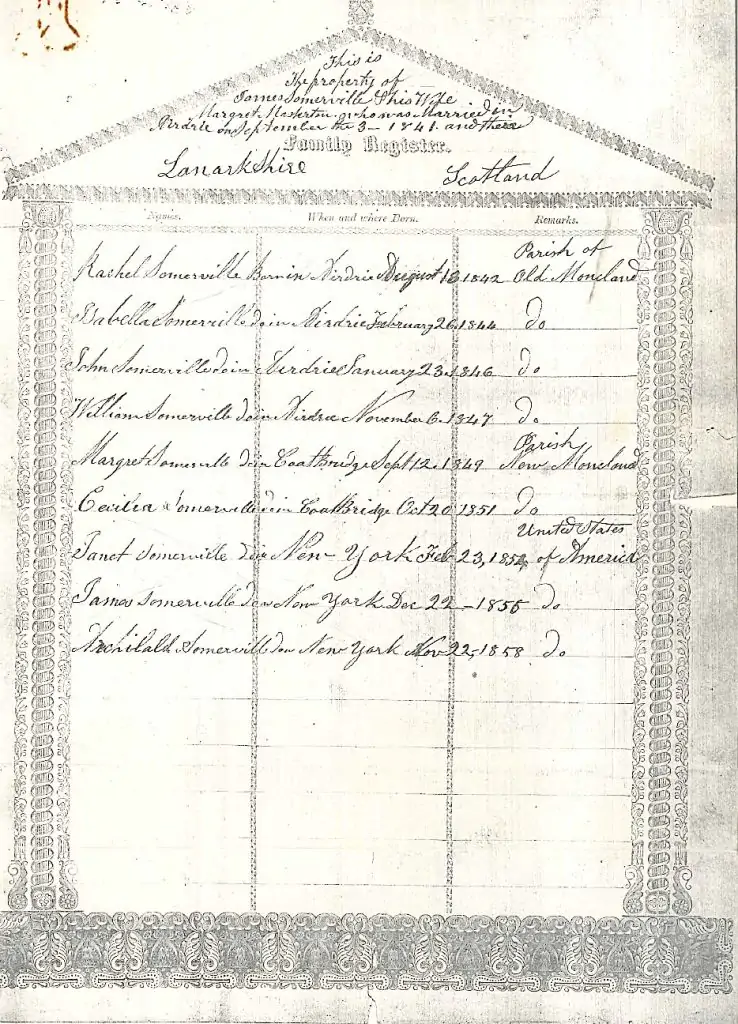 This is
The property of
James Somerville & his Wife
Margret Masterton, who was Married in
Airdrie on September the 3 - 1841. and there
Family Register.
Lanarkshire Scotland
Names. When and where Born. Remarks.
Parish of
Rachel Somerville Born in Airdrie August 18, 1842 Old Moncland
Isabella Somerville do in Airdrie February 26, 1844 do
John Somerville do in Airdrie January 23, 1846 do
William Somerville do in Airdrie November 6, 1847 do
Parish
Margret Somerville do in Coatbridge Sept 12, 1849 New Moncland
Cecilia Somerville do in CoatBridge Oct 20 1851 do
United States
Janet Somerville do in New York Feb 23, 1854 of America
James Somerville do in New York Dec 22 - 1856 do
Archibald Somerville do in New York Nov 22, 1858 do